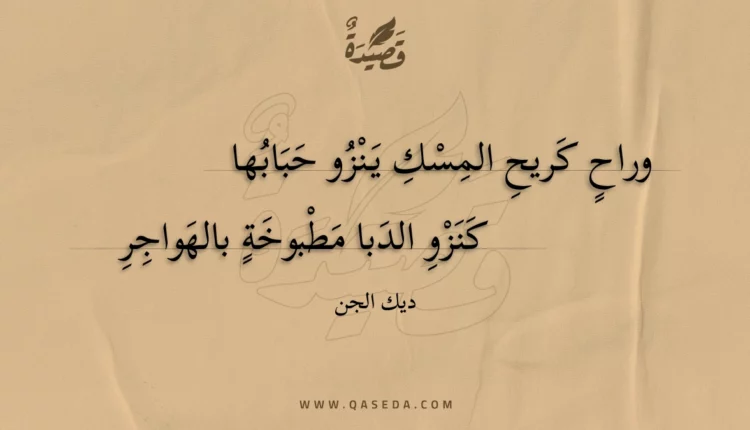 قَصِيدَةٌ
وراحٍ كَريحِ المِسْكِ يَنْزُو حَبَابُها
كَنَزْوِ الدَبا مَطْبوخَةٍ بالهَواجِرِ
ديك الجن
WWW.QASEDA.COM